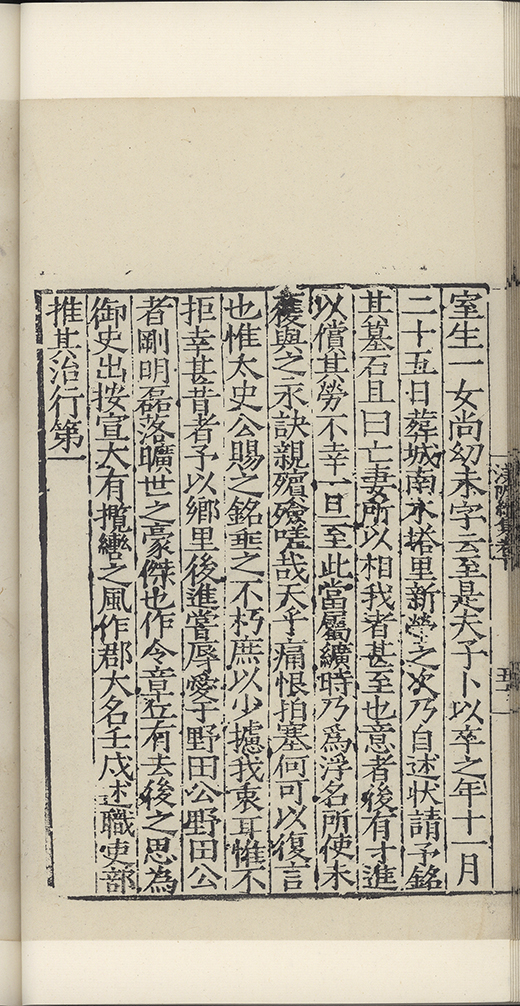 室生一女尚幼未字云至是夫子卜以卒之年十一月
二十五日葬城南水塔里新塋之次乃自述狀請予銘
其墓石且曰亡妻所以相我者甚至也意者後有才進
以償其勞不幸一旦至此當屬纊時乃為浮名所使未
獲與之永訣親殯殮嗟哉天乎痛恨拍塞何可以復言
也惟太史公賜之銘垂之不朽庶以少攄我衷耳惟不
拒幸甚昔者予以鄉里後進嘗辱愛于野田公野田公
者剛明磊落曠世之豪傑也作令章丘有去後之思為
御史出按宣大有攬轡之風作郡大名壬戌述職吏部
推其治行第一